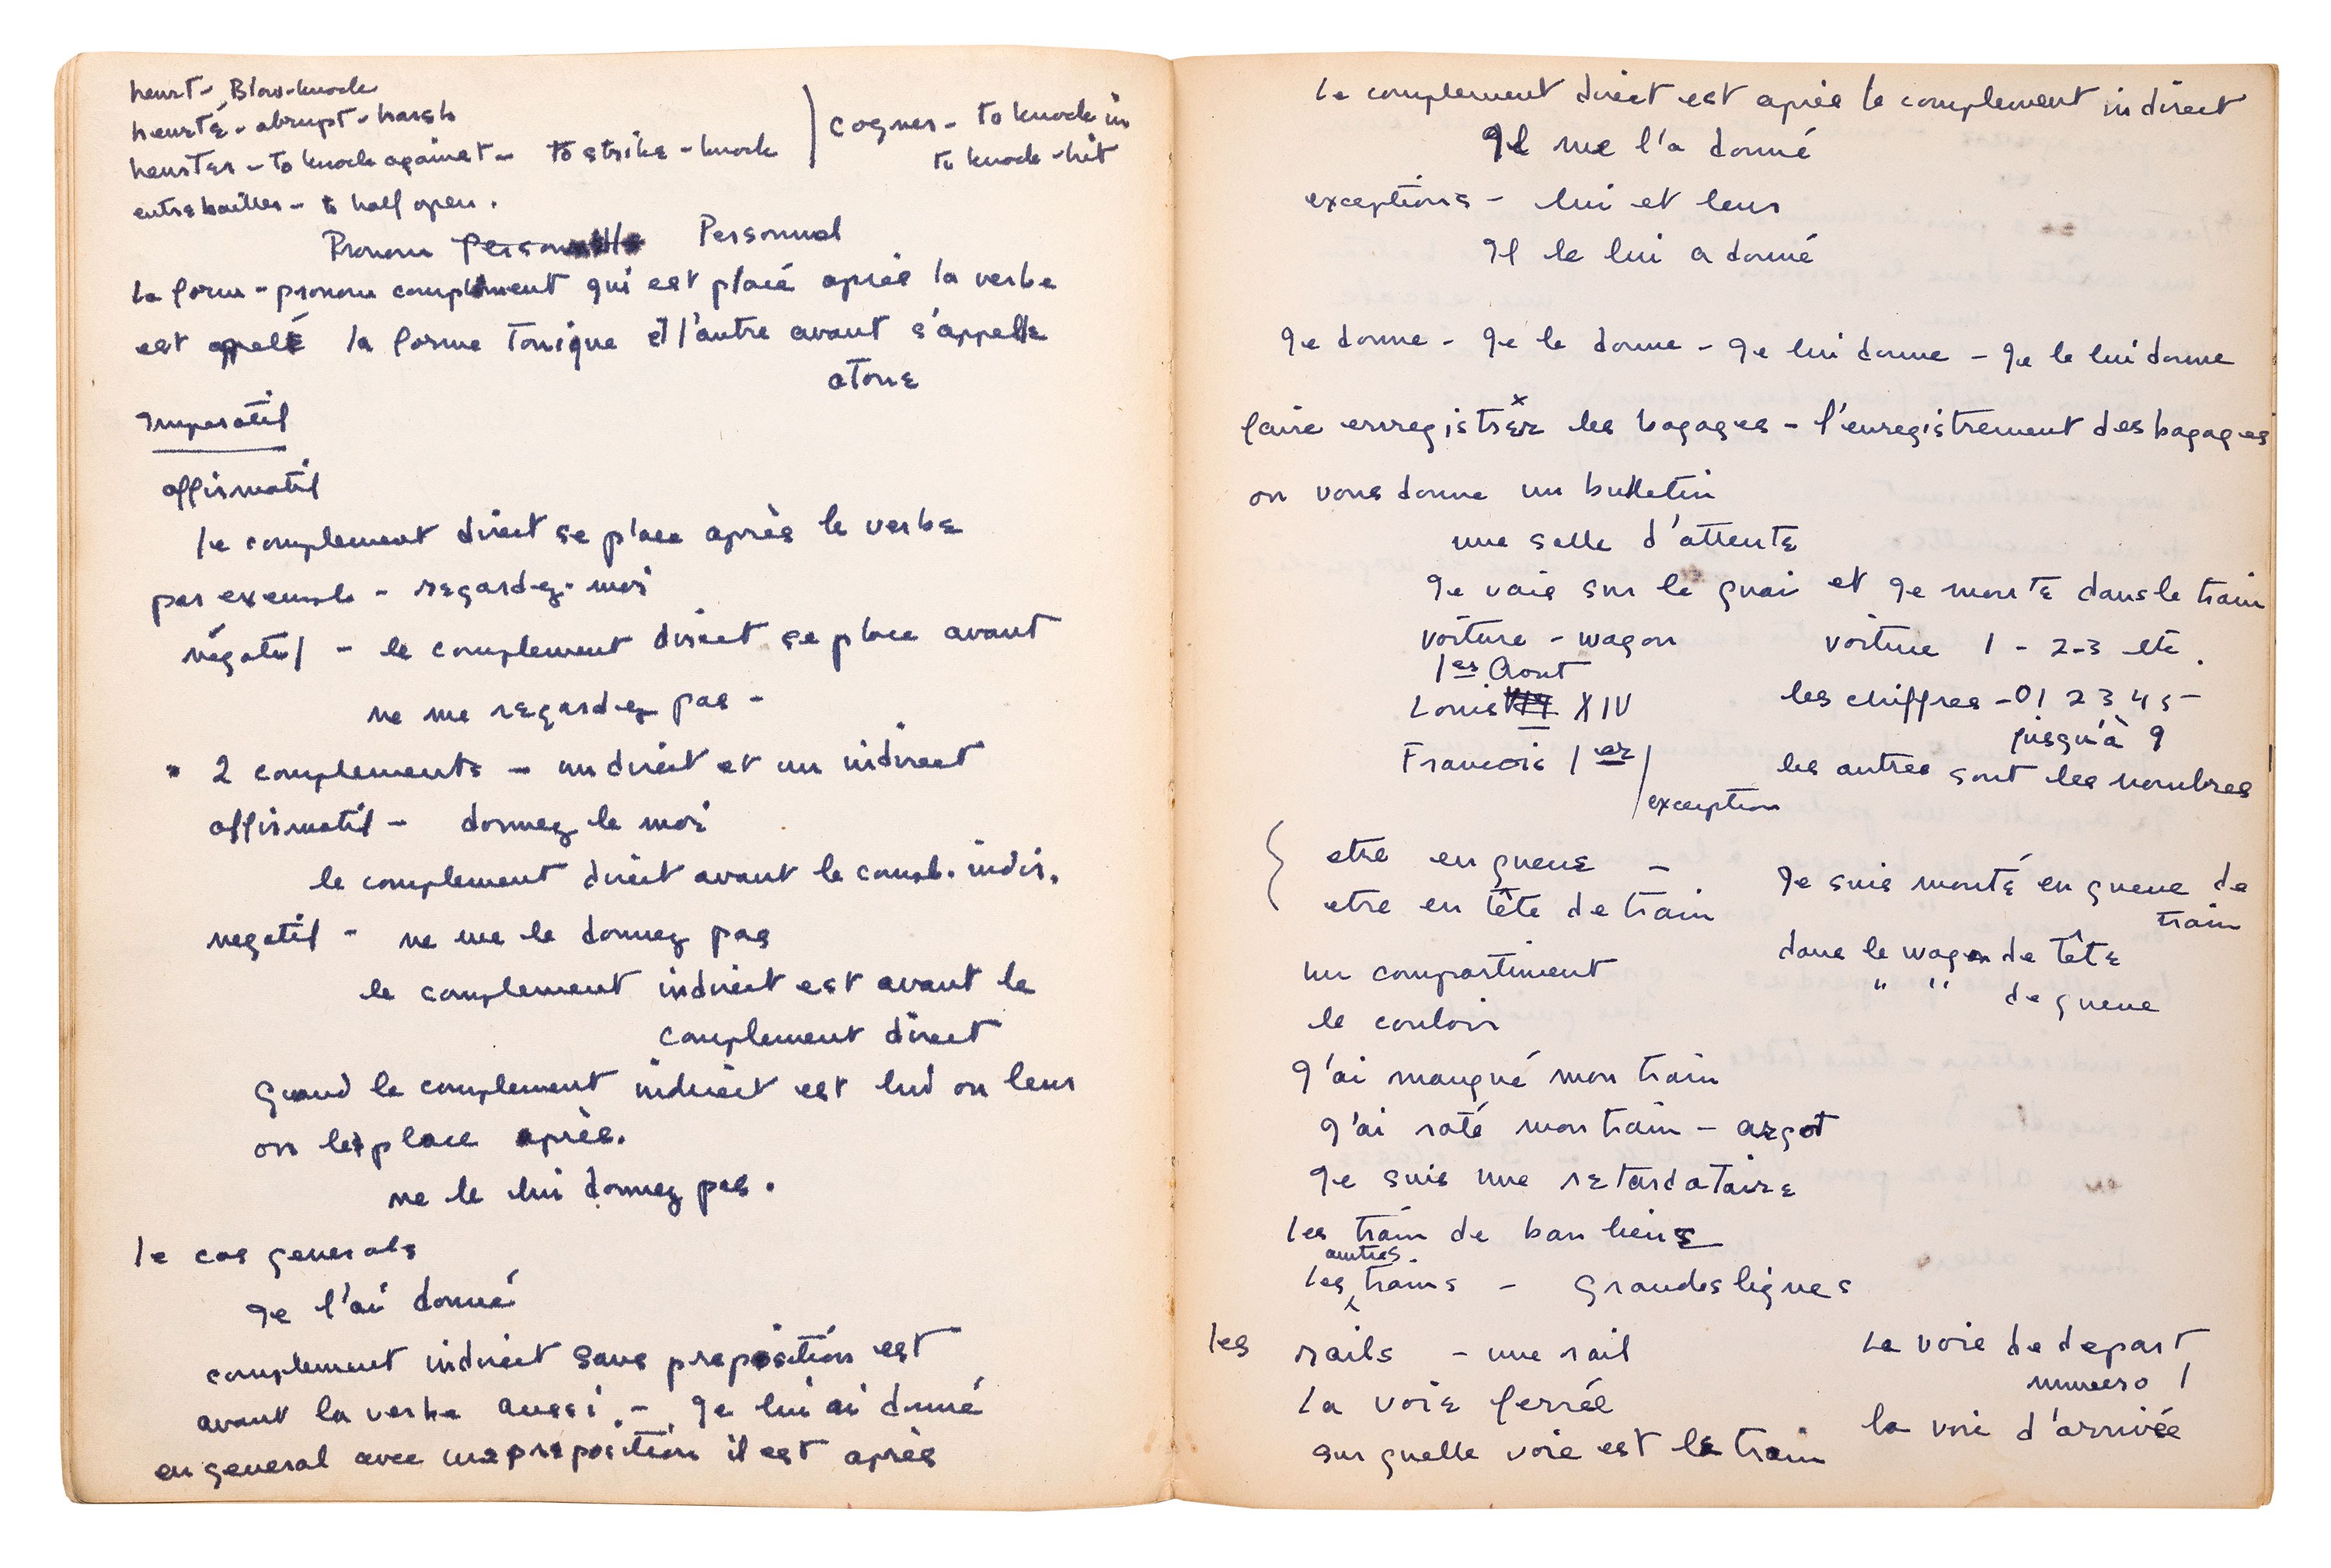 heurt - Blow-knock
heurté - abrupt - harsh
heurter - to knock against - to strike - knock
cogner - to knock in
to knock - hit
entrebailler - to half open.
Pronom Personnelle Personnal
La form - pronom complément qui est placé après la verbe
est appelé la forme tonique et l'autre avant s'appelle
atone
Imperatif
affirmatif
le complement direct se place après le verbe
par exemple - regardez-moi
négatif - le complement direct se place avant
ne me regardez pas -
2 complements - un direct et un indirect
affirmatif - donnez le moi
le complement direct avant le comp. indir.
negatif - ne me le donnez pas
le complement indirect est avant le
complement direct
Quand le complement indirect est lui ou leur
on les place après.
ne le lui donnez pas.
le cas generals
Je l'ai donné
complement indirect sans preposition est
avant la verbe aussi. - Je lui ai donné
en general avec une preposition il est après
Le complement direct est après le complement indirect
Il me l'a donné
exceptions - lui et leur
Il le lui a donné
Je donne - Je le donne - Je lui donne - Je le lui donne
x
faire enregistrer les bagages - l'enregistrement des bagages
on vous donne un bulletin
une salle d'attente
Je vais sur le quai et Je monte dans le train
voiture - wagon voiture 1 - 2-3 etc.
1er Aout
Louis XIV
les chiffres - 0 1 2 3 4 5 -
jusqu'à 9
Francois 1er
exception
les autres sont les nombres
etre en queue -
etre en tête de train
Je suis monté en queue de
train
dans le wagon de tête
" " de queue
un compartiment
le couloir
J'ai manqué mon train
J'ai raté mon train - argot
Je suis une retardataire
les train de banlieue
autres
les trains - Grandes lignes
les rails - une rail
La voie de depart
numero 1
La voie ferrée
la voie d'arrivée
sur quelle voie est le train